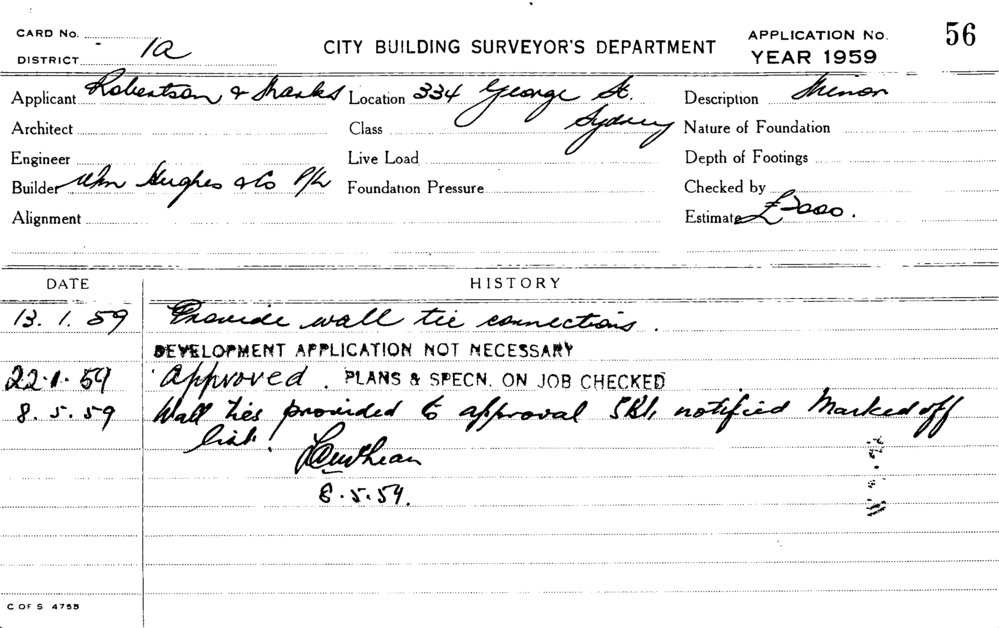 CARD No.
DISTRICT 1a
CITY BUILDING SURVEYOR'S DEPARTMENT
APPLICATION No. 56
YEAR 1959
Applicant Robertson & Marks Location 334 George St. Sydney Description Minor
Architect Class Nature of Foundation
Engineer Live Load Depth of Footings
Builder Wm Hughes & Co P/L Foundation Pressure Checked by
Alignment Estimate £2000.
DATE HISTORY
13. 1. 59 Provide wall tie connections.
DEVELOPMENT APPLICATION NOT NECESSARY
22.1.59 Approved. PLANS & SPECN. ON JOB CHECKED
8. 5. 59 Wall ties provided to approval notified Marked off
list!
8.5.59.
C OF S 475B